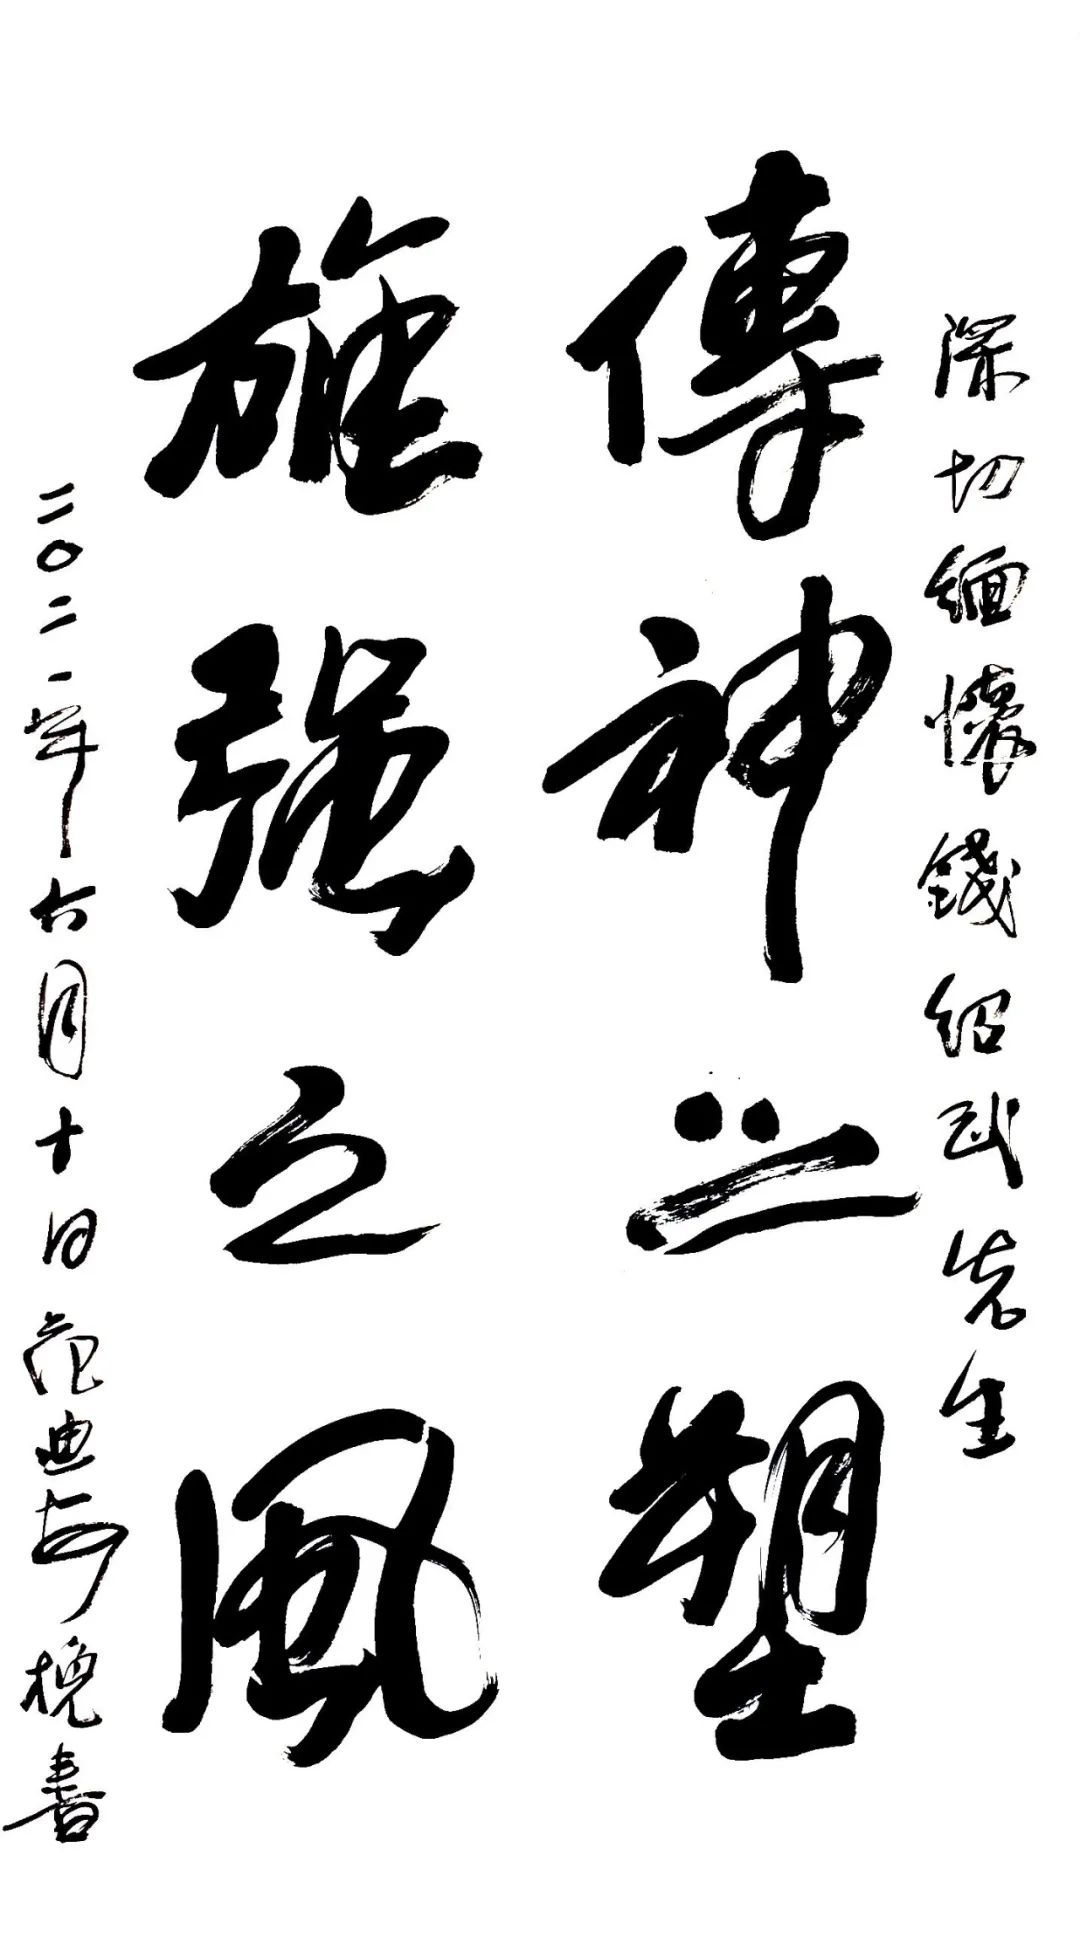 深切緬懷錢紹武先生
傳神之塑
雄强之風
二〇二一年六月十日范迪安挽書